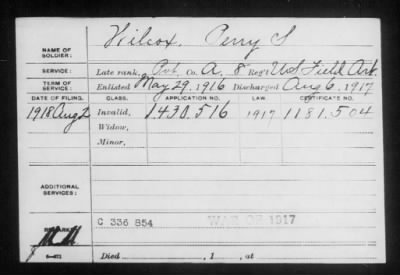 Wilcox, Perry S
NAME OF SOLDIER:
SERVICE: Late rank, Pvt. Co. A, 8" Reg't U S Field Art.
TERM OF SERVICE: Enlisted May 29, 1916 Discharged Aug 6, 1917
DATE OF FILING. CLASS. APPLICATION NO. LAW. CERTIFICATE NO.
1918 Aug 2 Invalid, 1430.516 1917 1181.504
Widow,
Minor,
ADDITIONAL SERVICES:
REMARKS:
C 336 854 WAR OF 1917
Died , 1 , at